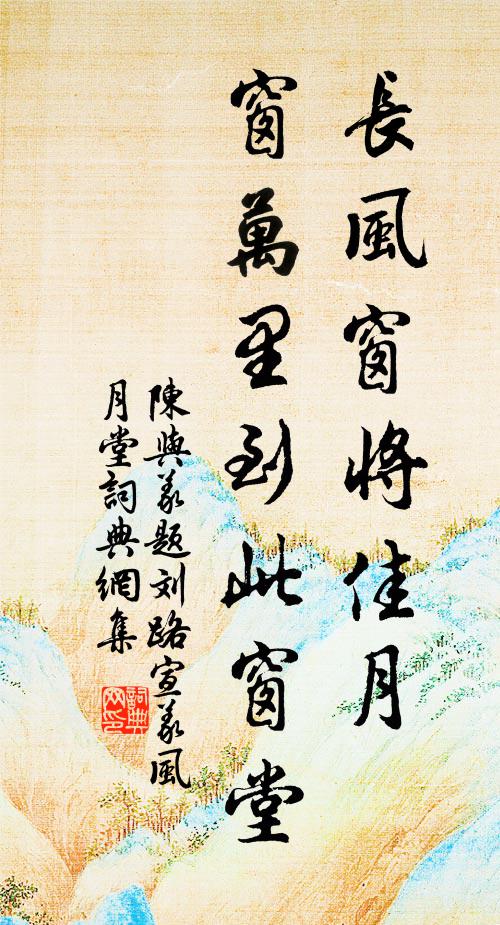 長風窗將佳月
窗萬里到此窗堂
陳與義題刘路宣義風
月堂詞典網集
詞典
网印